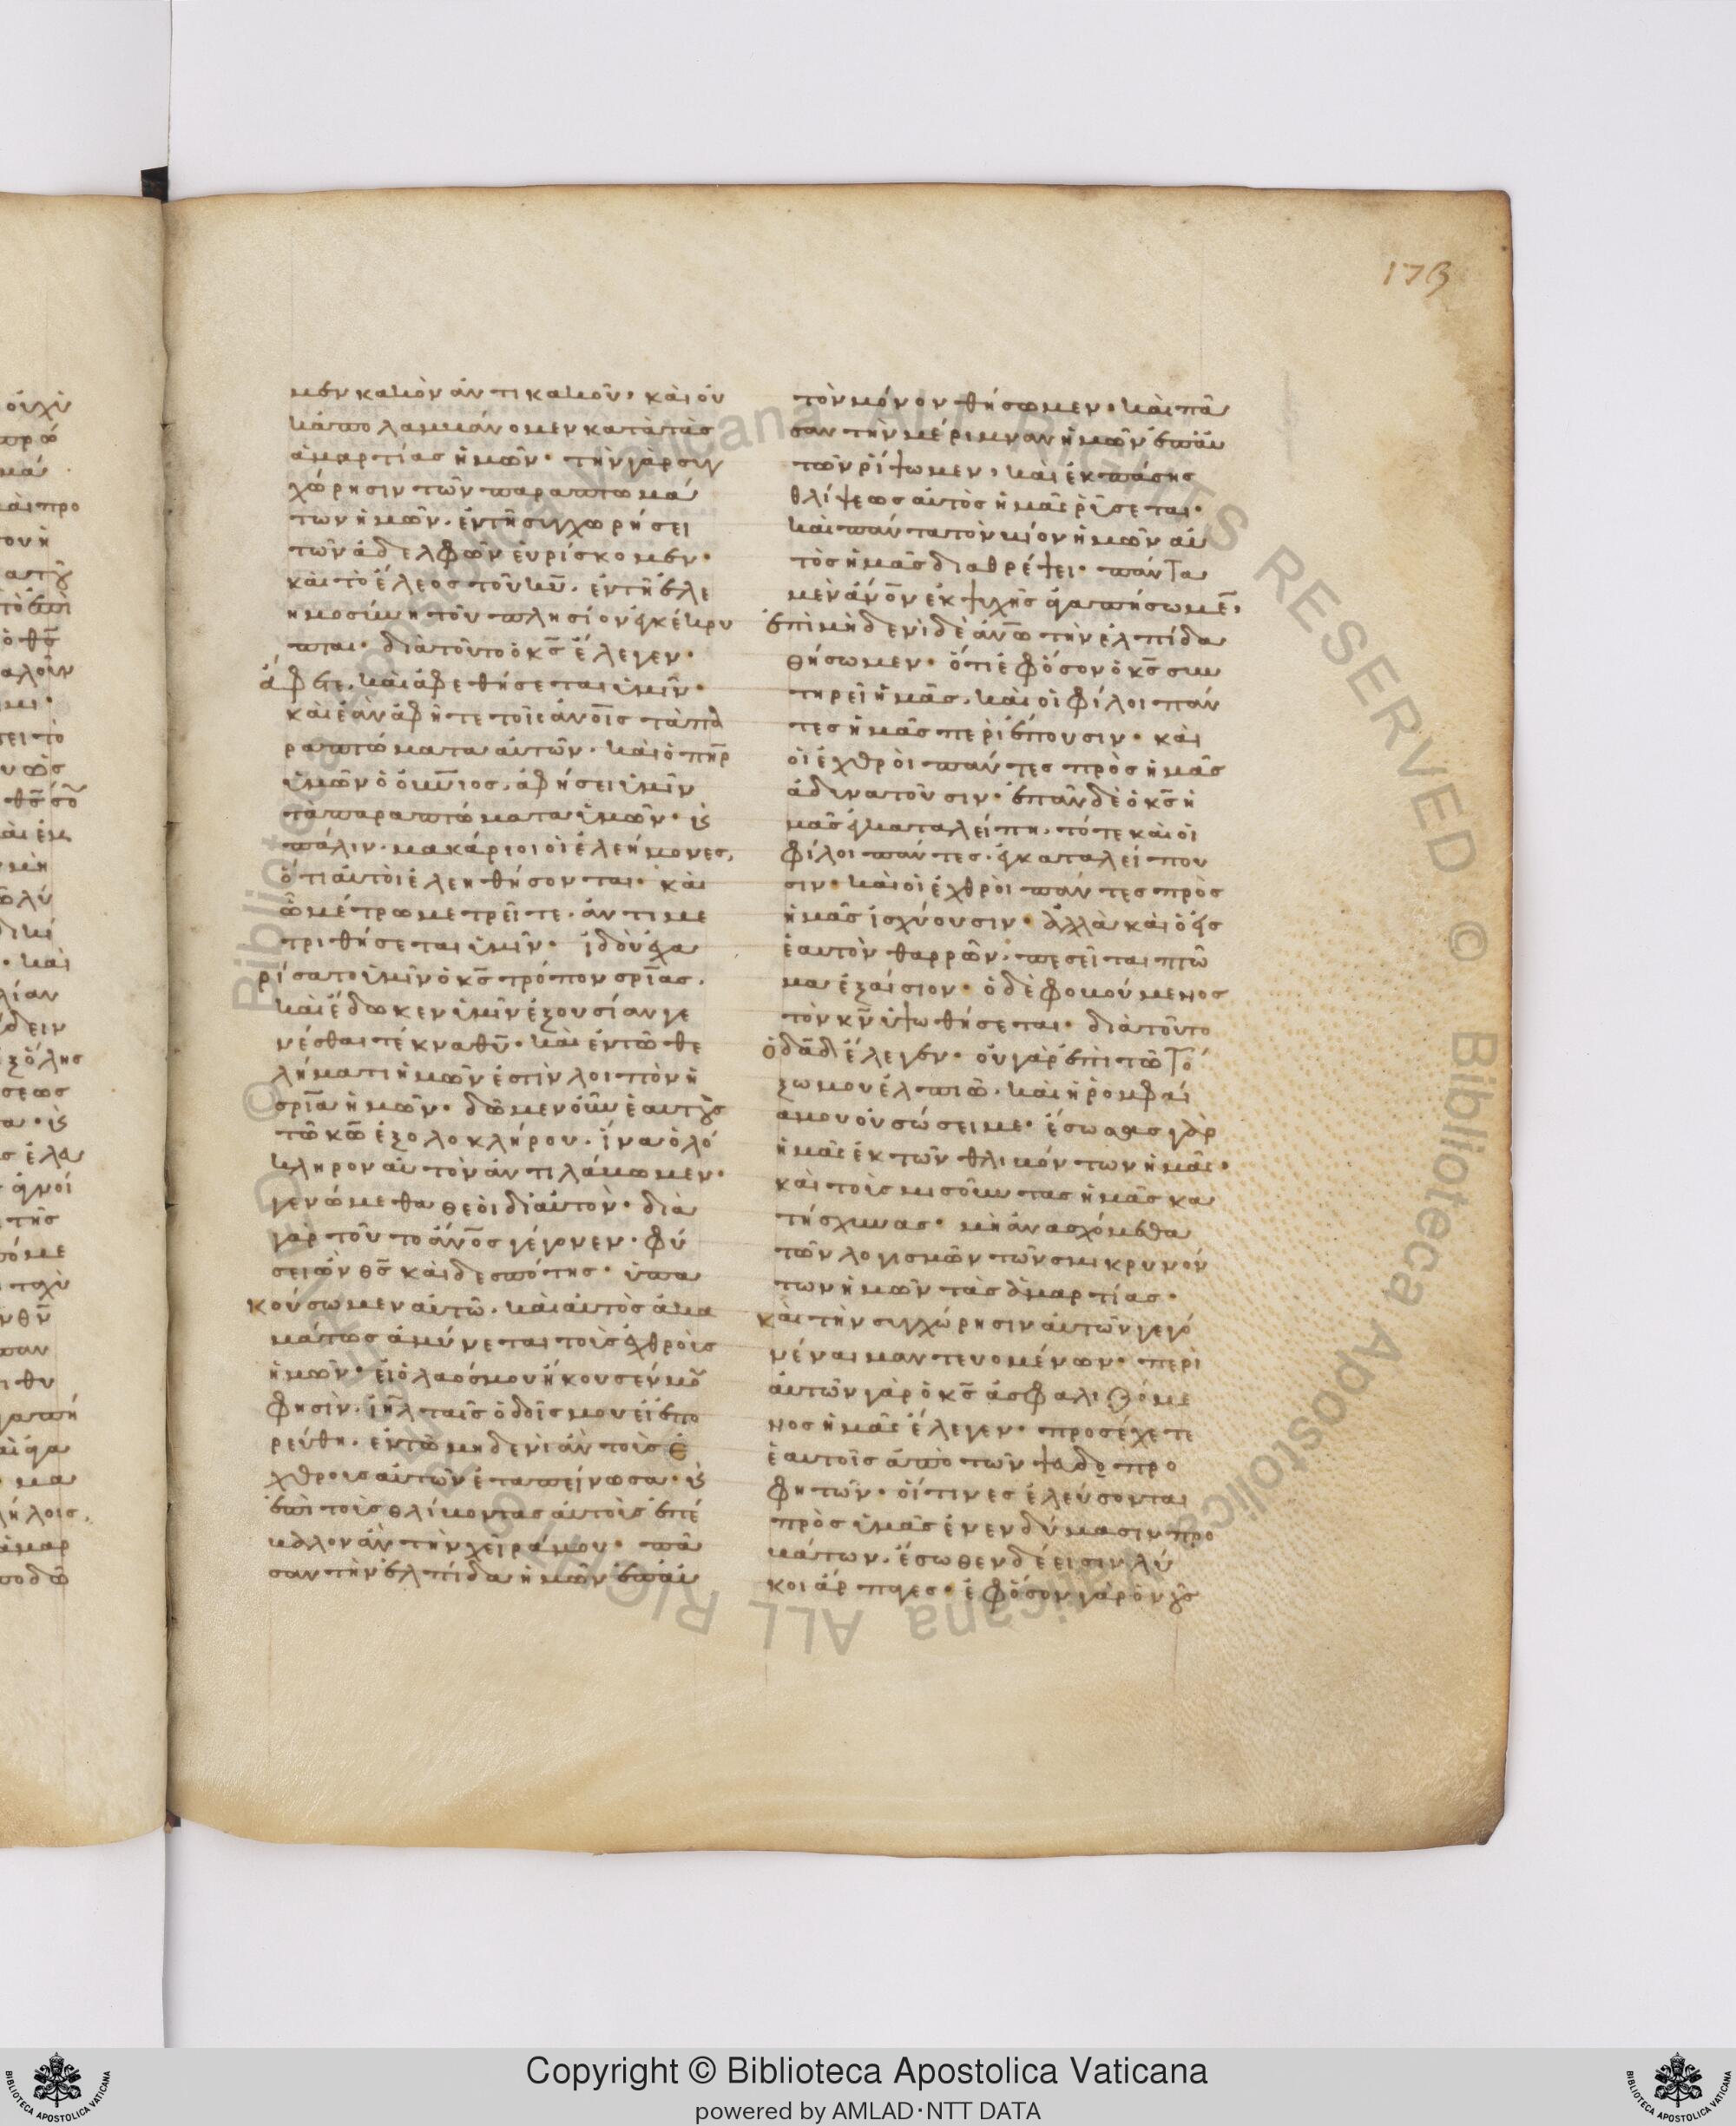 173
μεν κακὸν ἀντι κακοῦ, καὶ οὐ
κἀπολαμβάνομεν κατὰ τὰς
ἁμαρτίας ἡμῶν· τὴν γὰρ συγ
χώρησιν τῶν παραπτωμά
των ἡμῶν, ἐν τῆ συγχωρήσει
τῶν ἀδελφῶν εὑρίσκομεν·
καὶ τὸ ἔλεος τοῦ κυ, ἐν τῆ ἐλε
ημοσύνη τοῦ πλησίον ἐγκέκρυ
πται· διὰ τοῦτο ὁ κς ἔλεγεν·
ἄφετε, καὶ ἀφεθήσεται ὑμῖν·
καὶ ἐὰν ἀφῆτε τοῖς ἀνοις τὰ πα
ραπτώματα αὐτῶν, καὶ ὁ πηρ
ὑμῶν ὁ οὐνιος, ἀφήσει ὑμῖν
τὰ παραπτώματα ὑμῶν· κ
πάλιν· μακάριοι οἱ ἐλεήμονες,
ὅτι αὐτοὶ ἐλεηθήσονται· καὶ
ῶ μέτρω μετρεῖτε, ἀντιμε
τριθήσεται ὑμῖν· ἰδοὺ ἐχα
ρίσατο ὑμῖν ὁ κς τρόπον σριας,
καὶ ἔδωκεν ὑμῖν ἐξουσίαν γε
νέσθαι τέκνα θυ· καὶ ἐν τῶ θε
λήματι ἡμῶν ἐστὶν λοιπὸν ἡ
σρια ἡμῶν· δῶμεν οὖν ἑαυτοὺς
τῶ κω ἐξολοκλήρου, ἵνα ὁλό
κληρον αὐτὸν ἀντιλάβωμεν·
γενώμεθα θεοὶ δι αὐτὸν· διὰ
γὰρ τοῦτο ἀνος γέγονεν· φύ
σει ὢν θς καὶ δεσπότης· ὑπα
κούσωμεν αὐτῶ, καὶ αὐτὸς ἀκα
μάτως ἀμύνεται τοὺς ἐχθροὺς
ἡμῶν· εἰ ὁ λαός μου ἤκουσέν μου
φησὶν, ιηλ ταῖς ὁδοῖς μου εἰ ἐπο
ρεύθη, ἐν τῶ μηδενὶ ἂν τοὺς ἐ
χθροὺς αὐτῶν ἐταπείνωσα· κ
ἐπὶ τοὺς θλίβοντας αὐτοὺς ἐπέ
βαλον ἂν τὴν χεῖρά μου· πᾶ
σαν τὴν ἐλπίδα ἡμῶν ἐπ αὐ
τὸν μόνον θήσωμεν· καὶ πᾶ
σαν τὴν μέριμναν ἡμῶν ἐπ αὐ
τῶν ῥίψωμεν, καὶ ἐκ πάσης
θλίψεως αὐτὸς ἡμᾶς ῥύσεται·
καὶ παντα τὸν βίον ἡμῶν αὐ
τὸς ἡμᾶς διαθρέψει· πάντα
μὲν ἀνον ἐκ ψυχῆς ἀγαπήσωμεν,
ἐπὶ μηδενὶ δὲ ἀνω τὴν ἐλπίδα
θήσωμεν· ὅτι ἐφόσον ὁ κς συν
τηρεῖ ἡμᾶς, καὶ οἱ φίλοι πάν
τες ἡμᾶς περιέπουσιν· καὶ
οἱ ἐχθροὶ πάντες πρὸς ἡμᾶς
ἀδυνατοῦσιν· ἐπὰν δὲ ὁ κς ἡ
μᾶς ἐγκαταλείπη, τότε καὶ οἱ
φίλοι πάντες, ἐγκαταλείπου
σιν· καὶ οἱ ἐχθροὶ πάντες πρὸς
ἡμᾶς ἰσχύουσιν· ἀλλὰ καὶ ὁ εἰς
ἑαυτὸν θαρρῶν, πεσεῖται πτῶ
μα ἐξαίσιον· ὁ δὲ φοβούμενος
τὸν κν ὑψωθήσεται· διὰ τοῦτο
ὁ δαδ ἔλεγεν· οὐ γὰρ ἐπὶ τῶ τό
ξω μου ἐλπιῶ, καὶ ἡ ῥομφαί
α μου οὐ σώσει με· ἔσωσας γὰρ
ἡμᾶς ἐκ τῶν θλιβόντων ἡμᾶς·
καὶ τοὺς μισοῦντας ἡμᾶς κα
τήσχυνας· μὴ ἀνασχόμεθα
τῶν λογισμῶν τῶν σμικρυνόν
των ἡμῶν τὰς ἁμαρτίας·
καὶ τὴν συγχώρησιν αὐτῶν γεγο
νέναι μαντευομένων· περὶ
αὐτῶν γὰρ ὁ κς ἀσφαλιζόμε
νος ἡμᾶς ἔλεγεν· προσέχετε
ἑαυτοῖς ἀπὸ τῶν ψαδοπρο
φητῶν· οἵτινες ἐλεύσονται
πρὸς ὑμᾶς ἐν ενδύμασιν προ
βάτων, ἔσωθεν δέ εισιν λύ
κοι ἅρπαγες· ἐφόσον γὰρ ὁ νοῦς
Copyright © Biblioteca Apostolica Vaticana
powered by AMLAD·NTT DATA